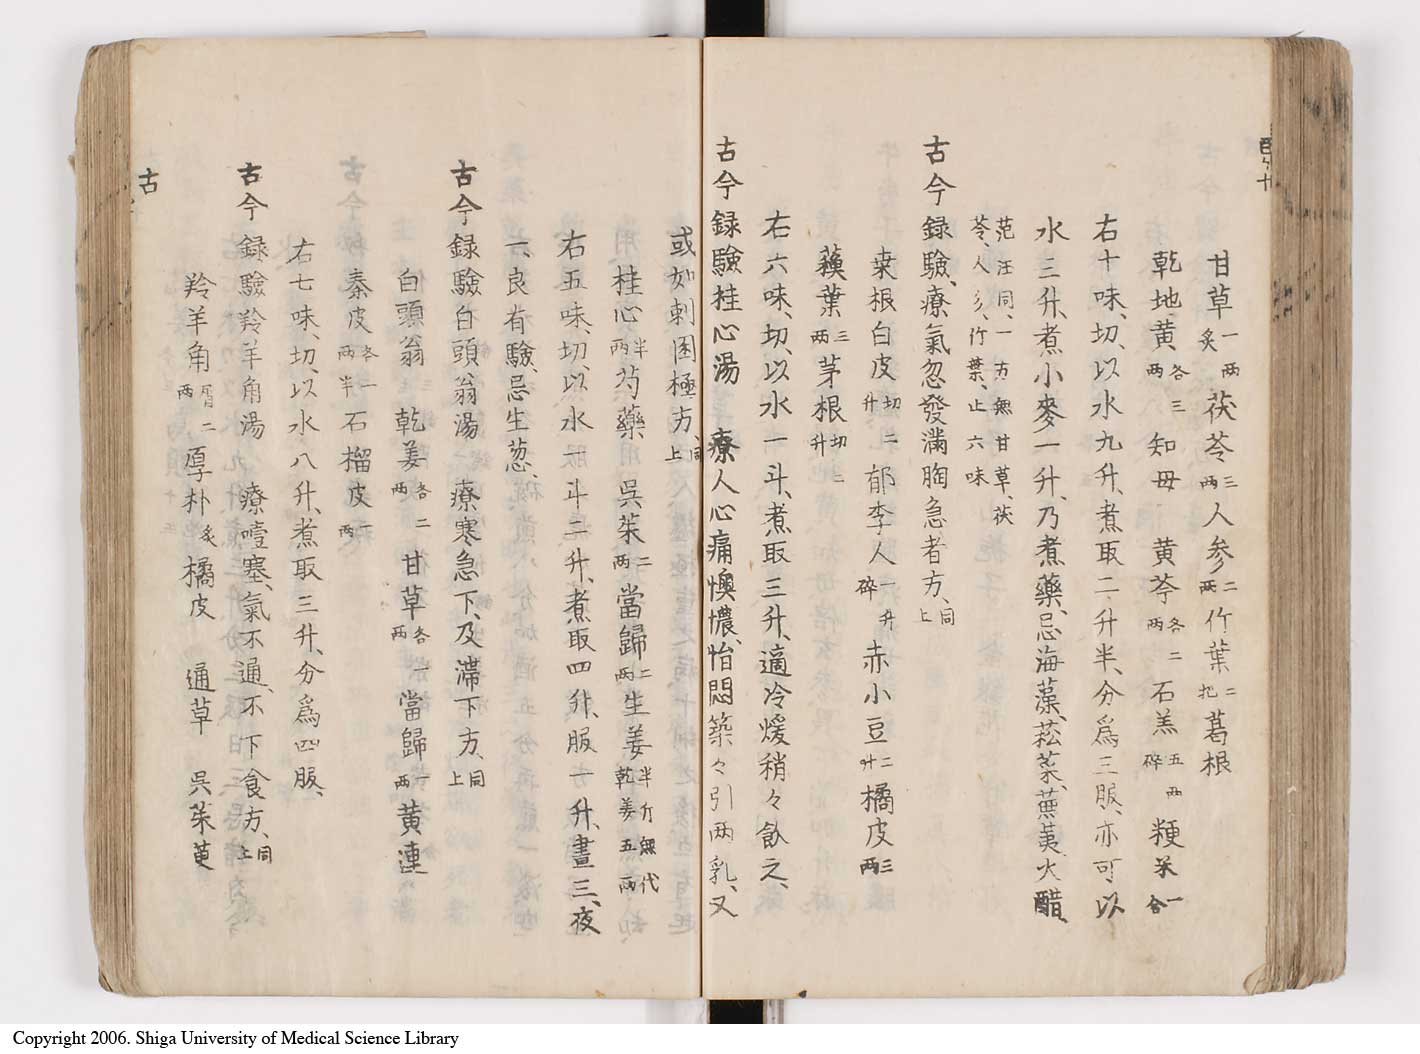 甘草一両炙茯苓三両人参二両竹葉二把葛根
乾地黄各三両知母黄芩各二両石羔五両碎粳米一合
右十味、切、以水九升、煮取二升半、分為三服、亦可以
水三升、煮小麥一升、乃煮藥、忌海藻、菘菜、蕪荑、大醋、
范汪同、一方無甘草、茯
苓、人參、竹葉、止六味
古今録驗、療氣忽發滿胸急者方、同上
桒根白皮切二升郁李人一升碎赤小豆二升橘皮三両
蘓葉三両茅根切一升
右六味、切、以水一斗、煮取三升、適冷煖稍々飲之、
古今録驗桂心湯 療人心痛懊憹、怡悶、築々引両乳、又
或如刺困極方、同上
桂心半両芍藥 吳茱二両當歸二両生姜半斤無代乾姜五両
右五味、切、以水一斗二升、煮取四升、服一升、晝三、夜
一、良有驗、忌生葱、
古今録驗白頭翁湯 療寒急下、及滞下方、同上
白頭翁 乾姜各二両甘草各一両當歸一両黄連
秦皮各一両半石榴皮一両
右七味、切、以水八升、煮取三升、分爲四服、
古今録驗羚羊角湯 療噎塞、氣不通、不下食方、同上
羚羊角屑二両厚朴炙橘皮 通草 吳茱萸
古
Copyright 2006. Shiga University of Medical Science Library